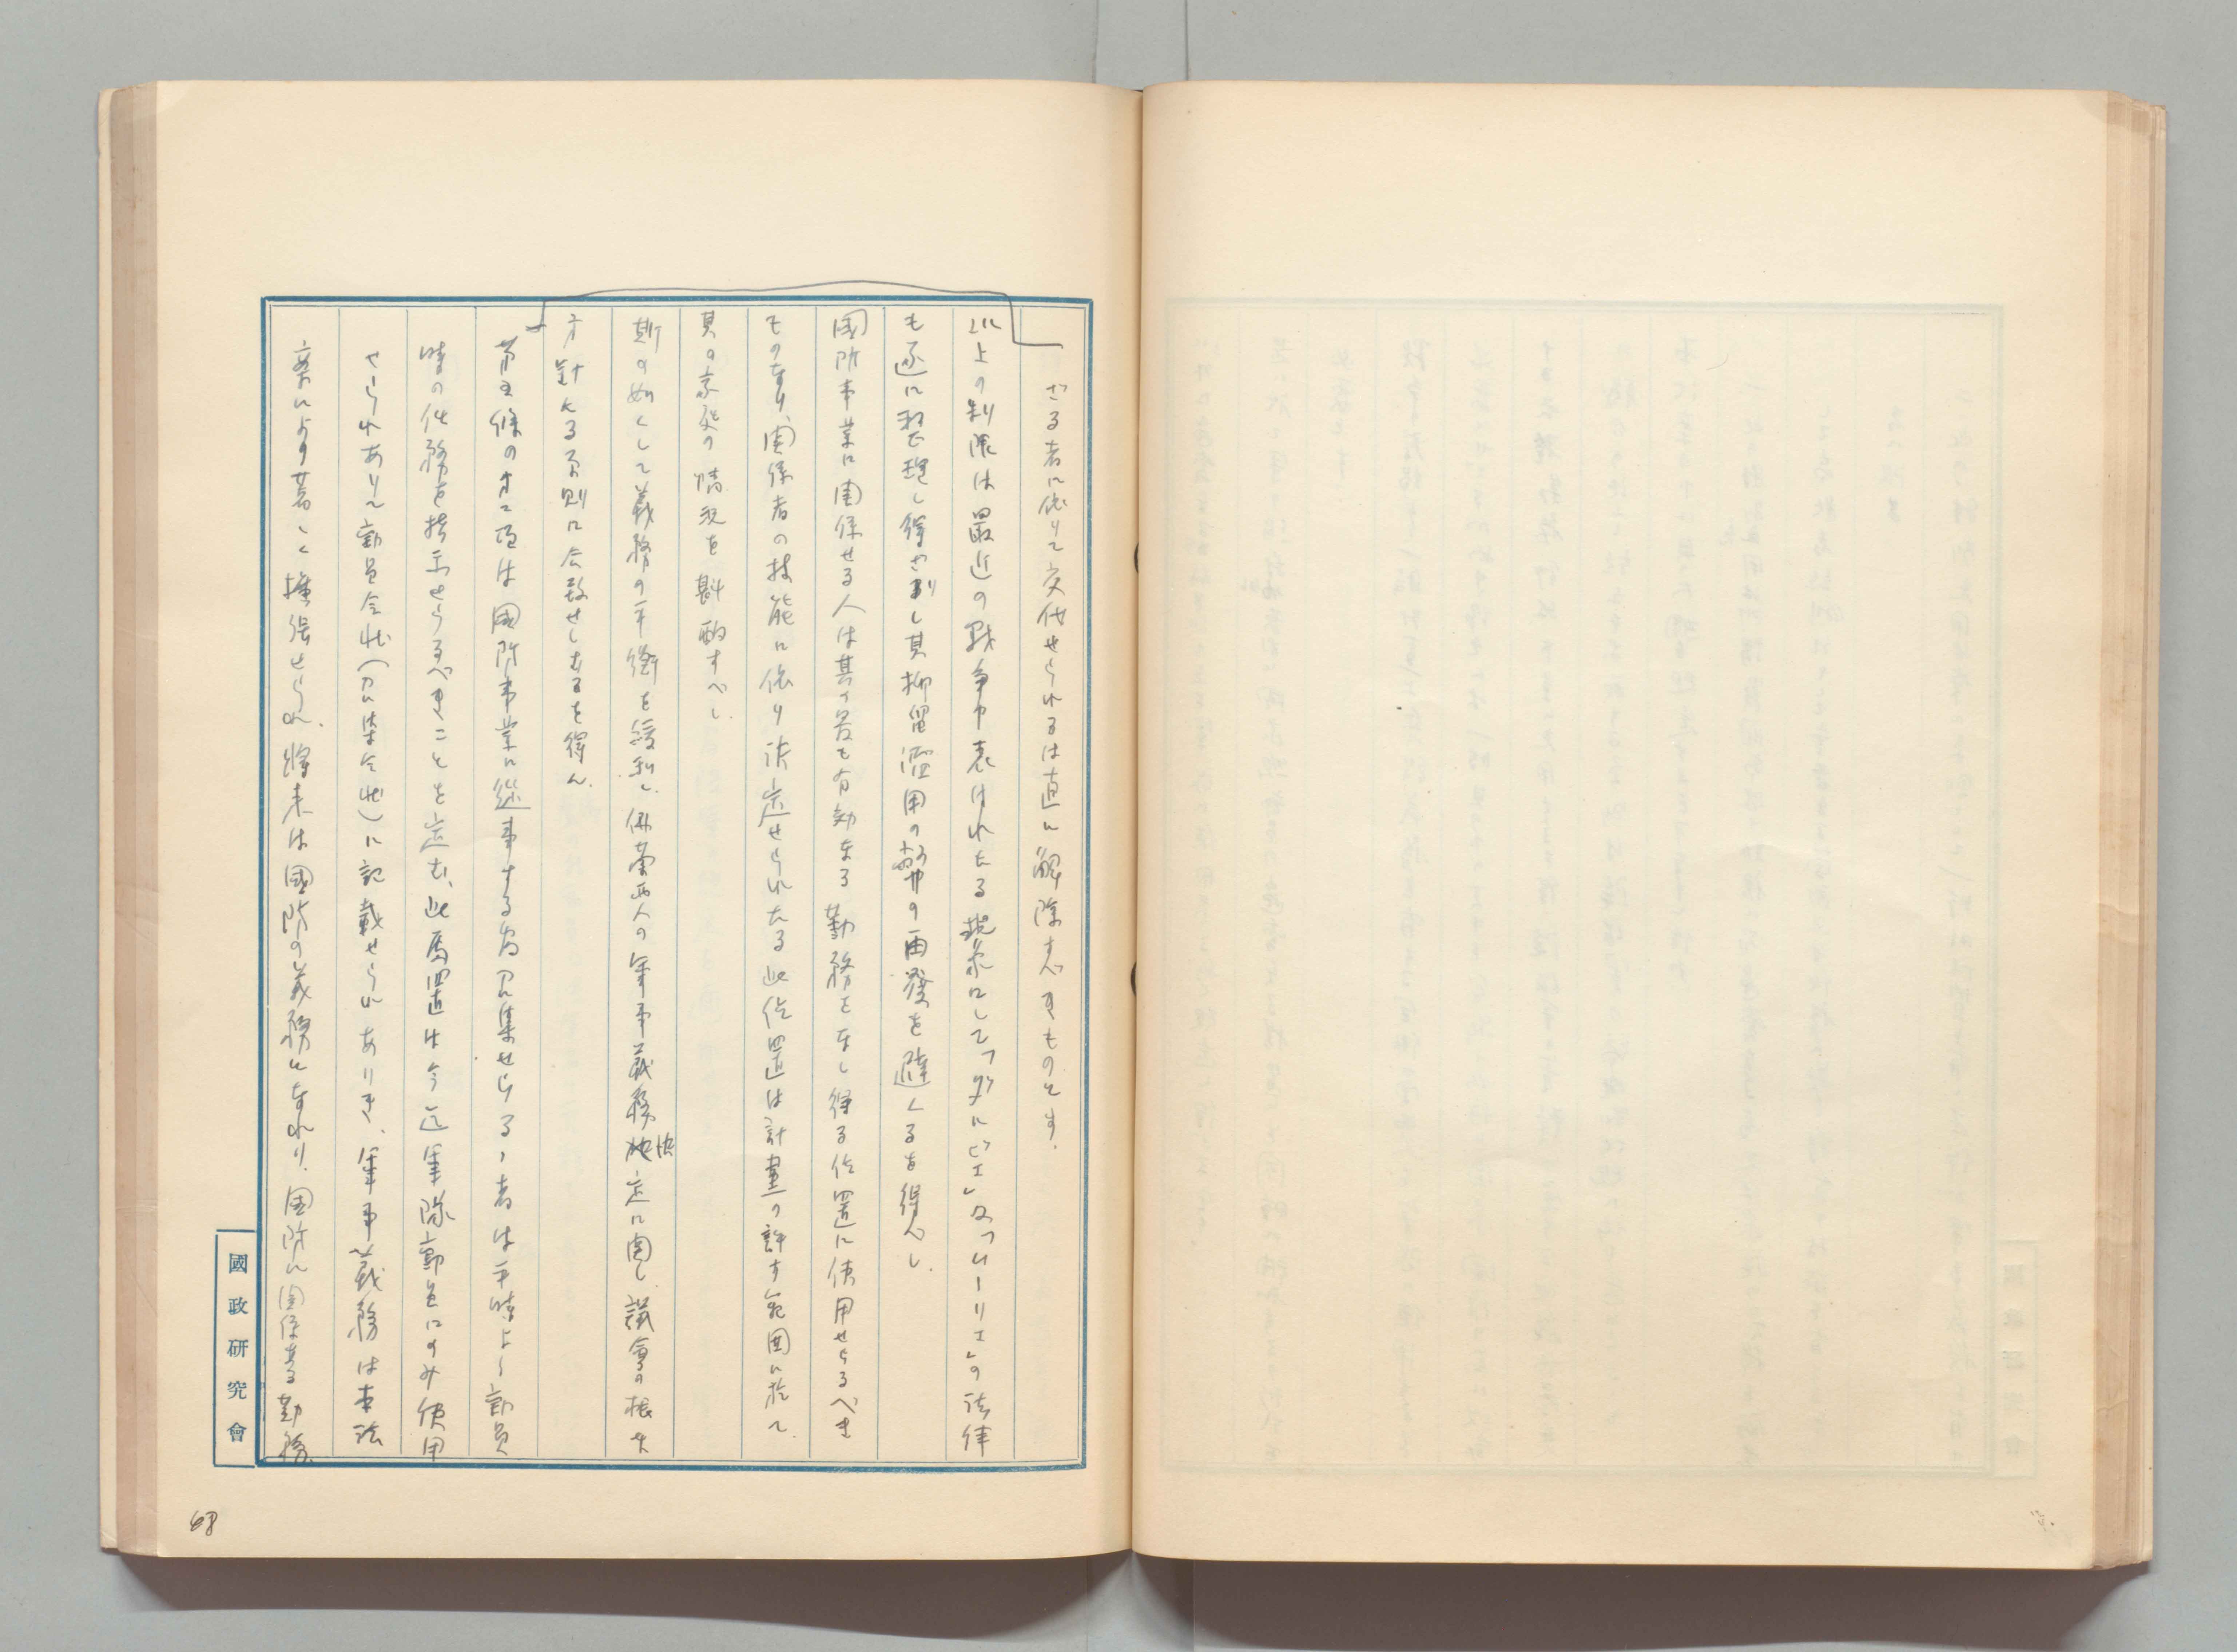 ざる者に依りて交代せらるれは直に解除すへきものとす.
以上の制限は最近の戦争中表はれたる現象にして「ダルビエ」及「ムーリエ」の法律
も遂に整理し得さりし其抑留濫用の弊の再発を避くるを得へし.
國防事業に関係せる人は其の最も有効なる勤務をなし得る位置に使用せらるへき
ものなり、関係者の技能に依り決定せられたる此位置は計畫の許す範囲に於て
其の家庭の情況を斟酌すへし.
斯の如くして義務の平衡を緩和し、佛蘭西人の軍事義務決定に関し、議會の根本
方針たる原則に合致せしむるを得ん.
第五條の第二項は國防事業に從事する為召集せらるゝ者は平時より動員
時の任務を指示せらるへきことを定む、此處置は今迄軍隊動員にのみ使用
せられありし動員令状(召集令状)に記載せられありき、軍事義務は本法
案により著しく擴張せられ、將来は國防の義務となれり、国防に関係ある勤務
國政研究會
68